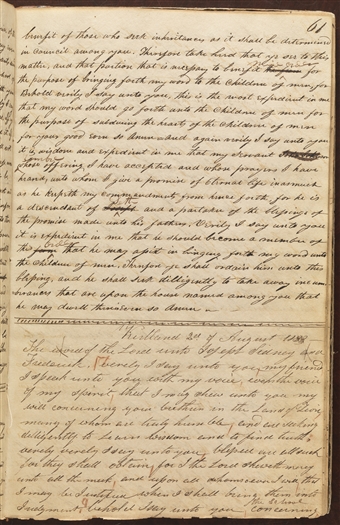 61
benefit of those who seek inheritances as it shall be determined
in council among you. Therefore take heed that ye see to this
matter, and that portion that is necessary to benefit for
the purpose of bringing forth my word to the children of men, for
Behold verily I say unto you, this is the most expedient in me
that my word should go forth unto the Children of men for
the purpose of subduing the hearts of the Children of men
for your good even so Amen And again verily I say unto you
it is wisdom and expedient in me that my servant
whose offering I have accepted and whose prayers I have
heard, unto whom I give a promise of Eternal life inasmuch
as he keepeth my commandments from hence forth for he is
a descendent of and a partaker of the blessings of
the promise made unto his fathers. Verily I say unto you
it is expedient in me that he should become a member of
this that he may assist in bringing forth my word unto
the Children of men. Therefore ye shall ordain him unto this
blessing, and he shall seek dilligently to take away incum-
brances that are upon the house named among you that
he may dwell therein even so Amen
Kirtland 2d of August
The Word of the Lord unto Joseph Sidney and
Frederick, verely I say unto you my friends
I speak unto you with my voice even the voice
of my spirit, that I may shew unto you my
will concerning your brethren in the Land of Zion
many of whom are truly humble and are seeking
dilligently to learn wisdom and to find truth,
verely verely I say unto you blessed are all such
for they shall obtain, for I the Lord sheweth mercy
unto all the meek and upon all whomsoever I will that
I may be Justified when I shall bring them into
Judgment, behold I say unto you concerning
the School